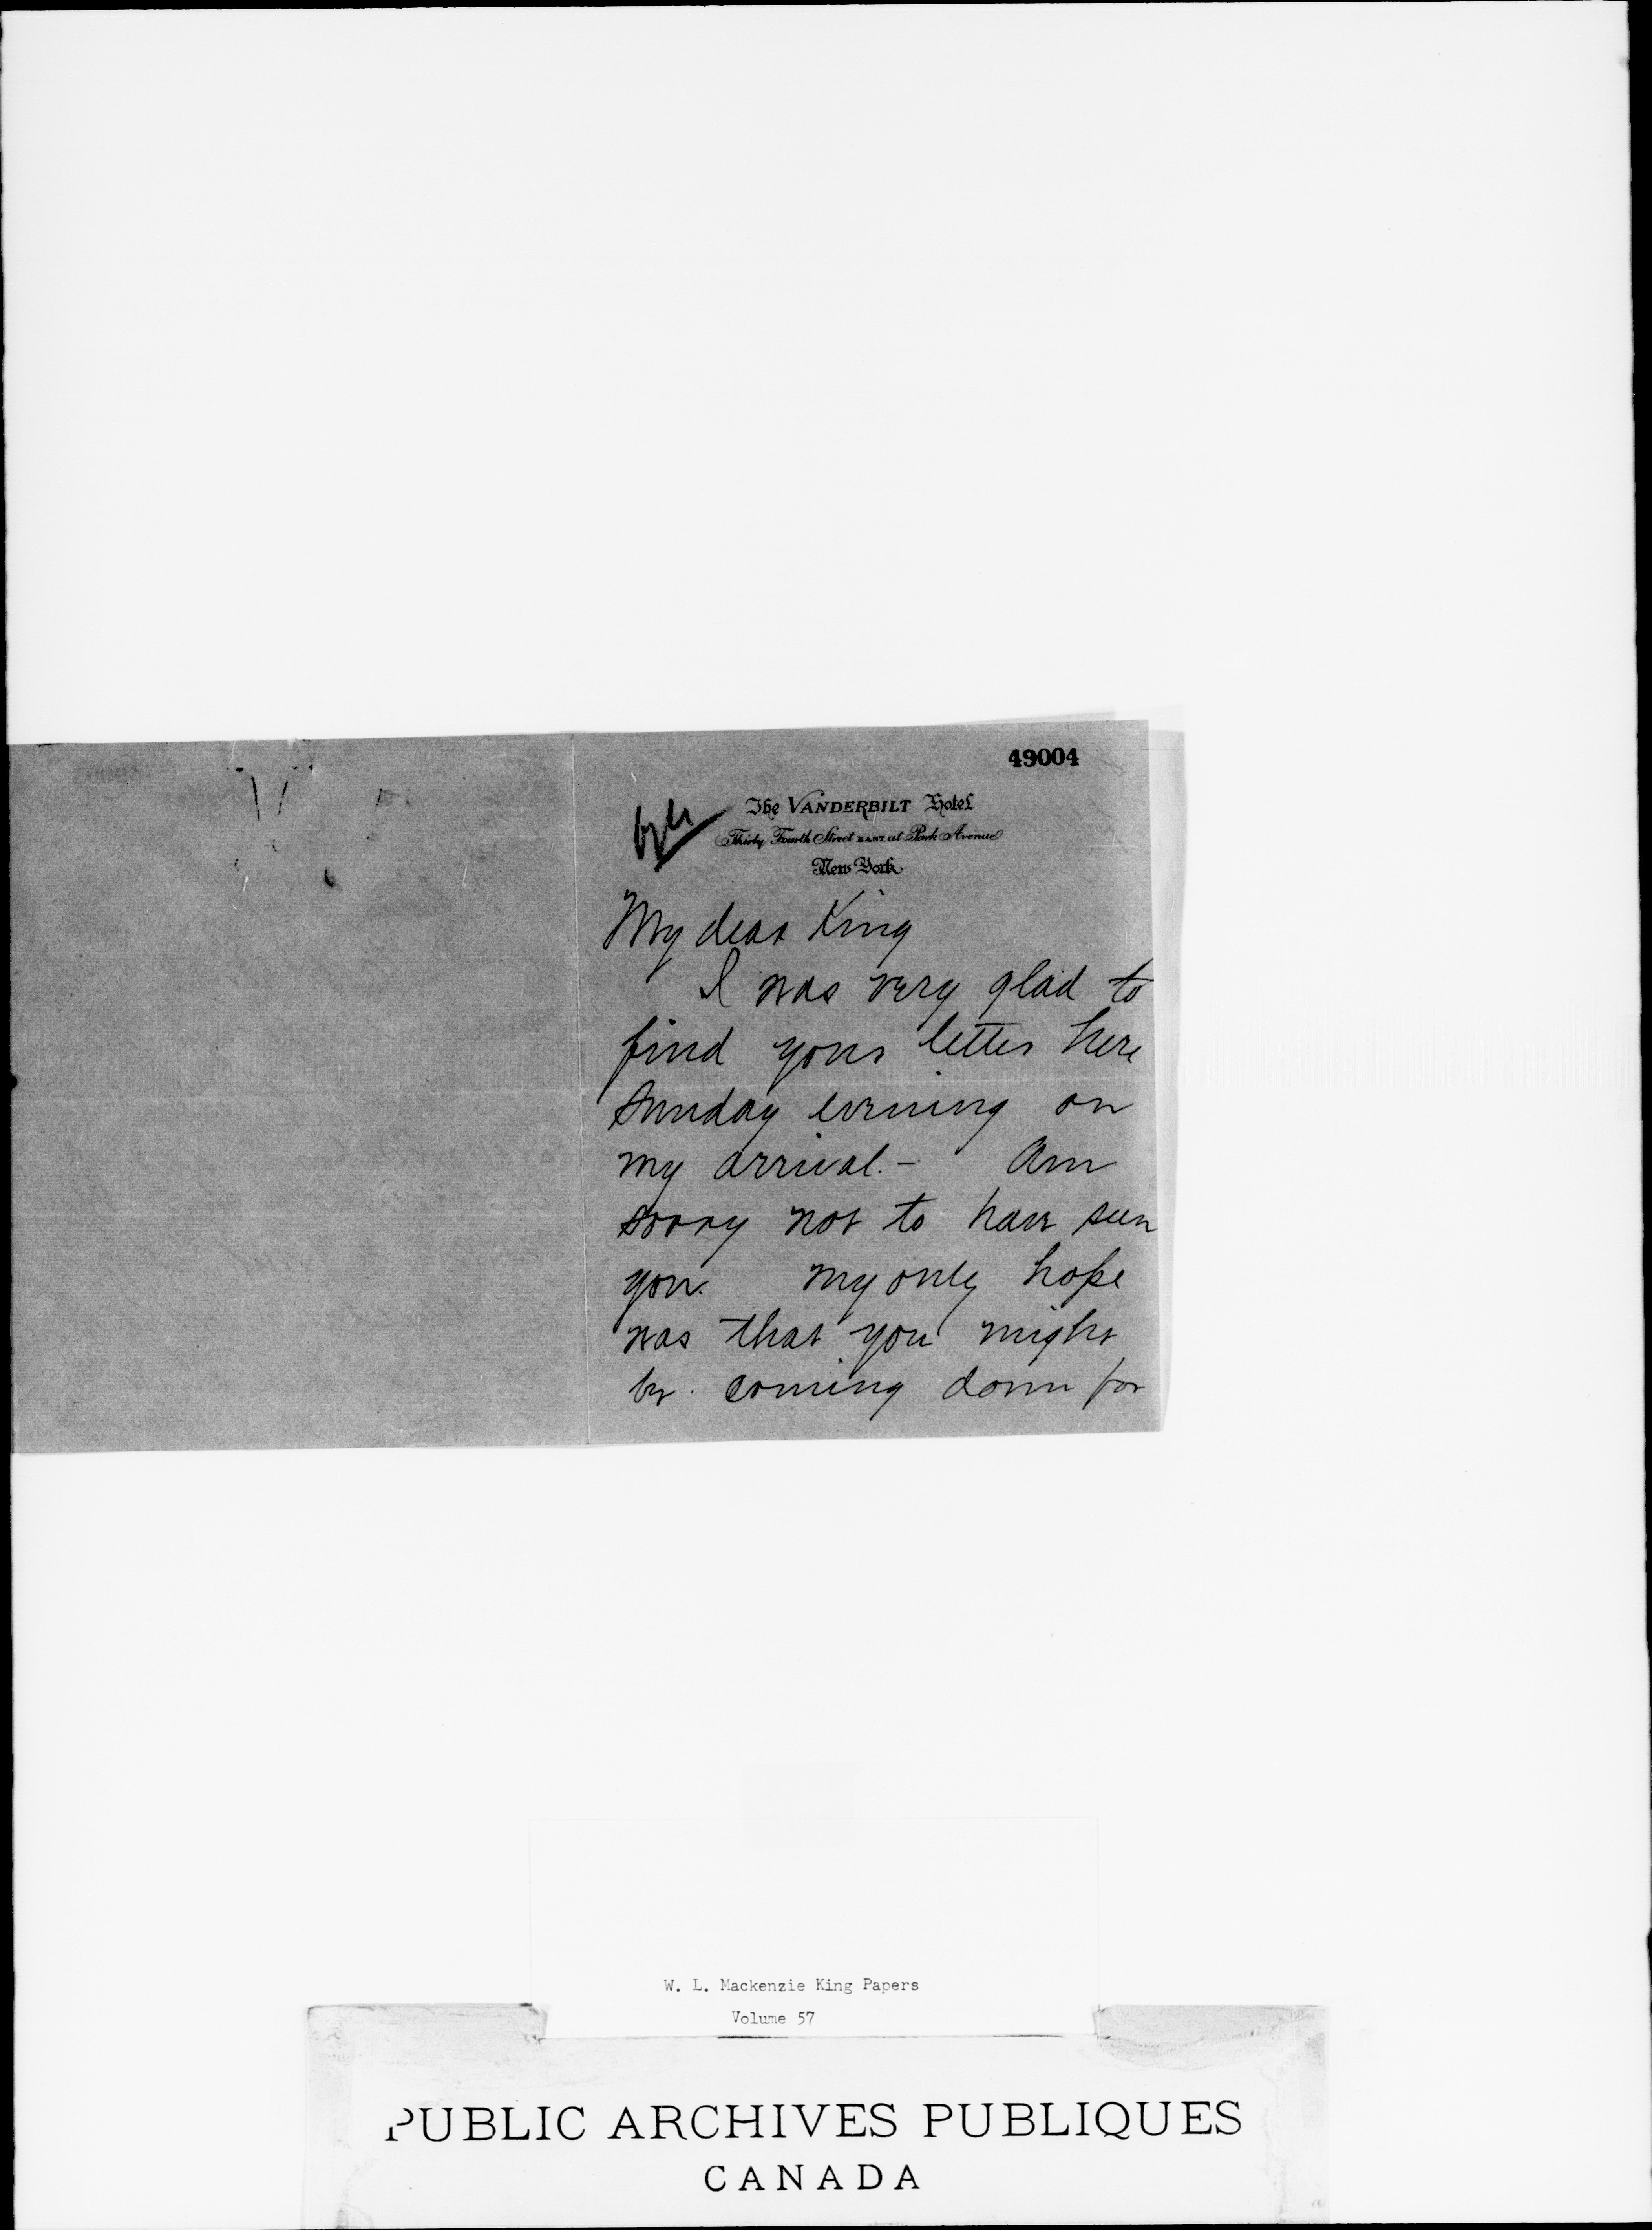 49004
The VANDERBILT Hotel
Thirty Fourth Street EAST at Park Avenue
New York
My dear King
I was very glad to
find your letter here
Sunday evening on
my arrival. - Am
sorry not to have seen
you. My only hope
was that you might
be coming down for
W. L. Mackenzie King Papers
Volume 57
PUBLIC ARCHIVES PUBLIQUES
CANADA